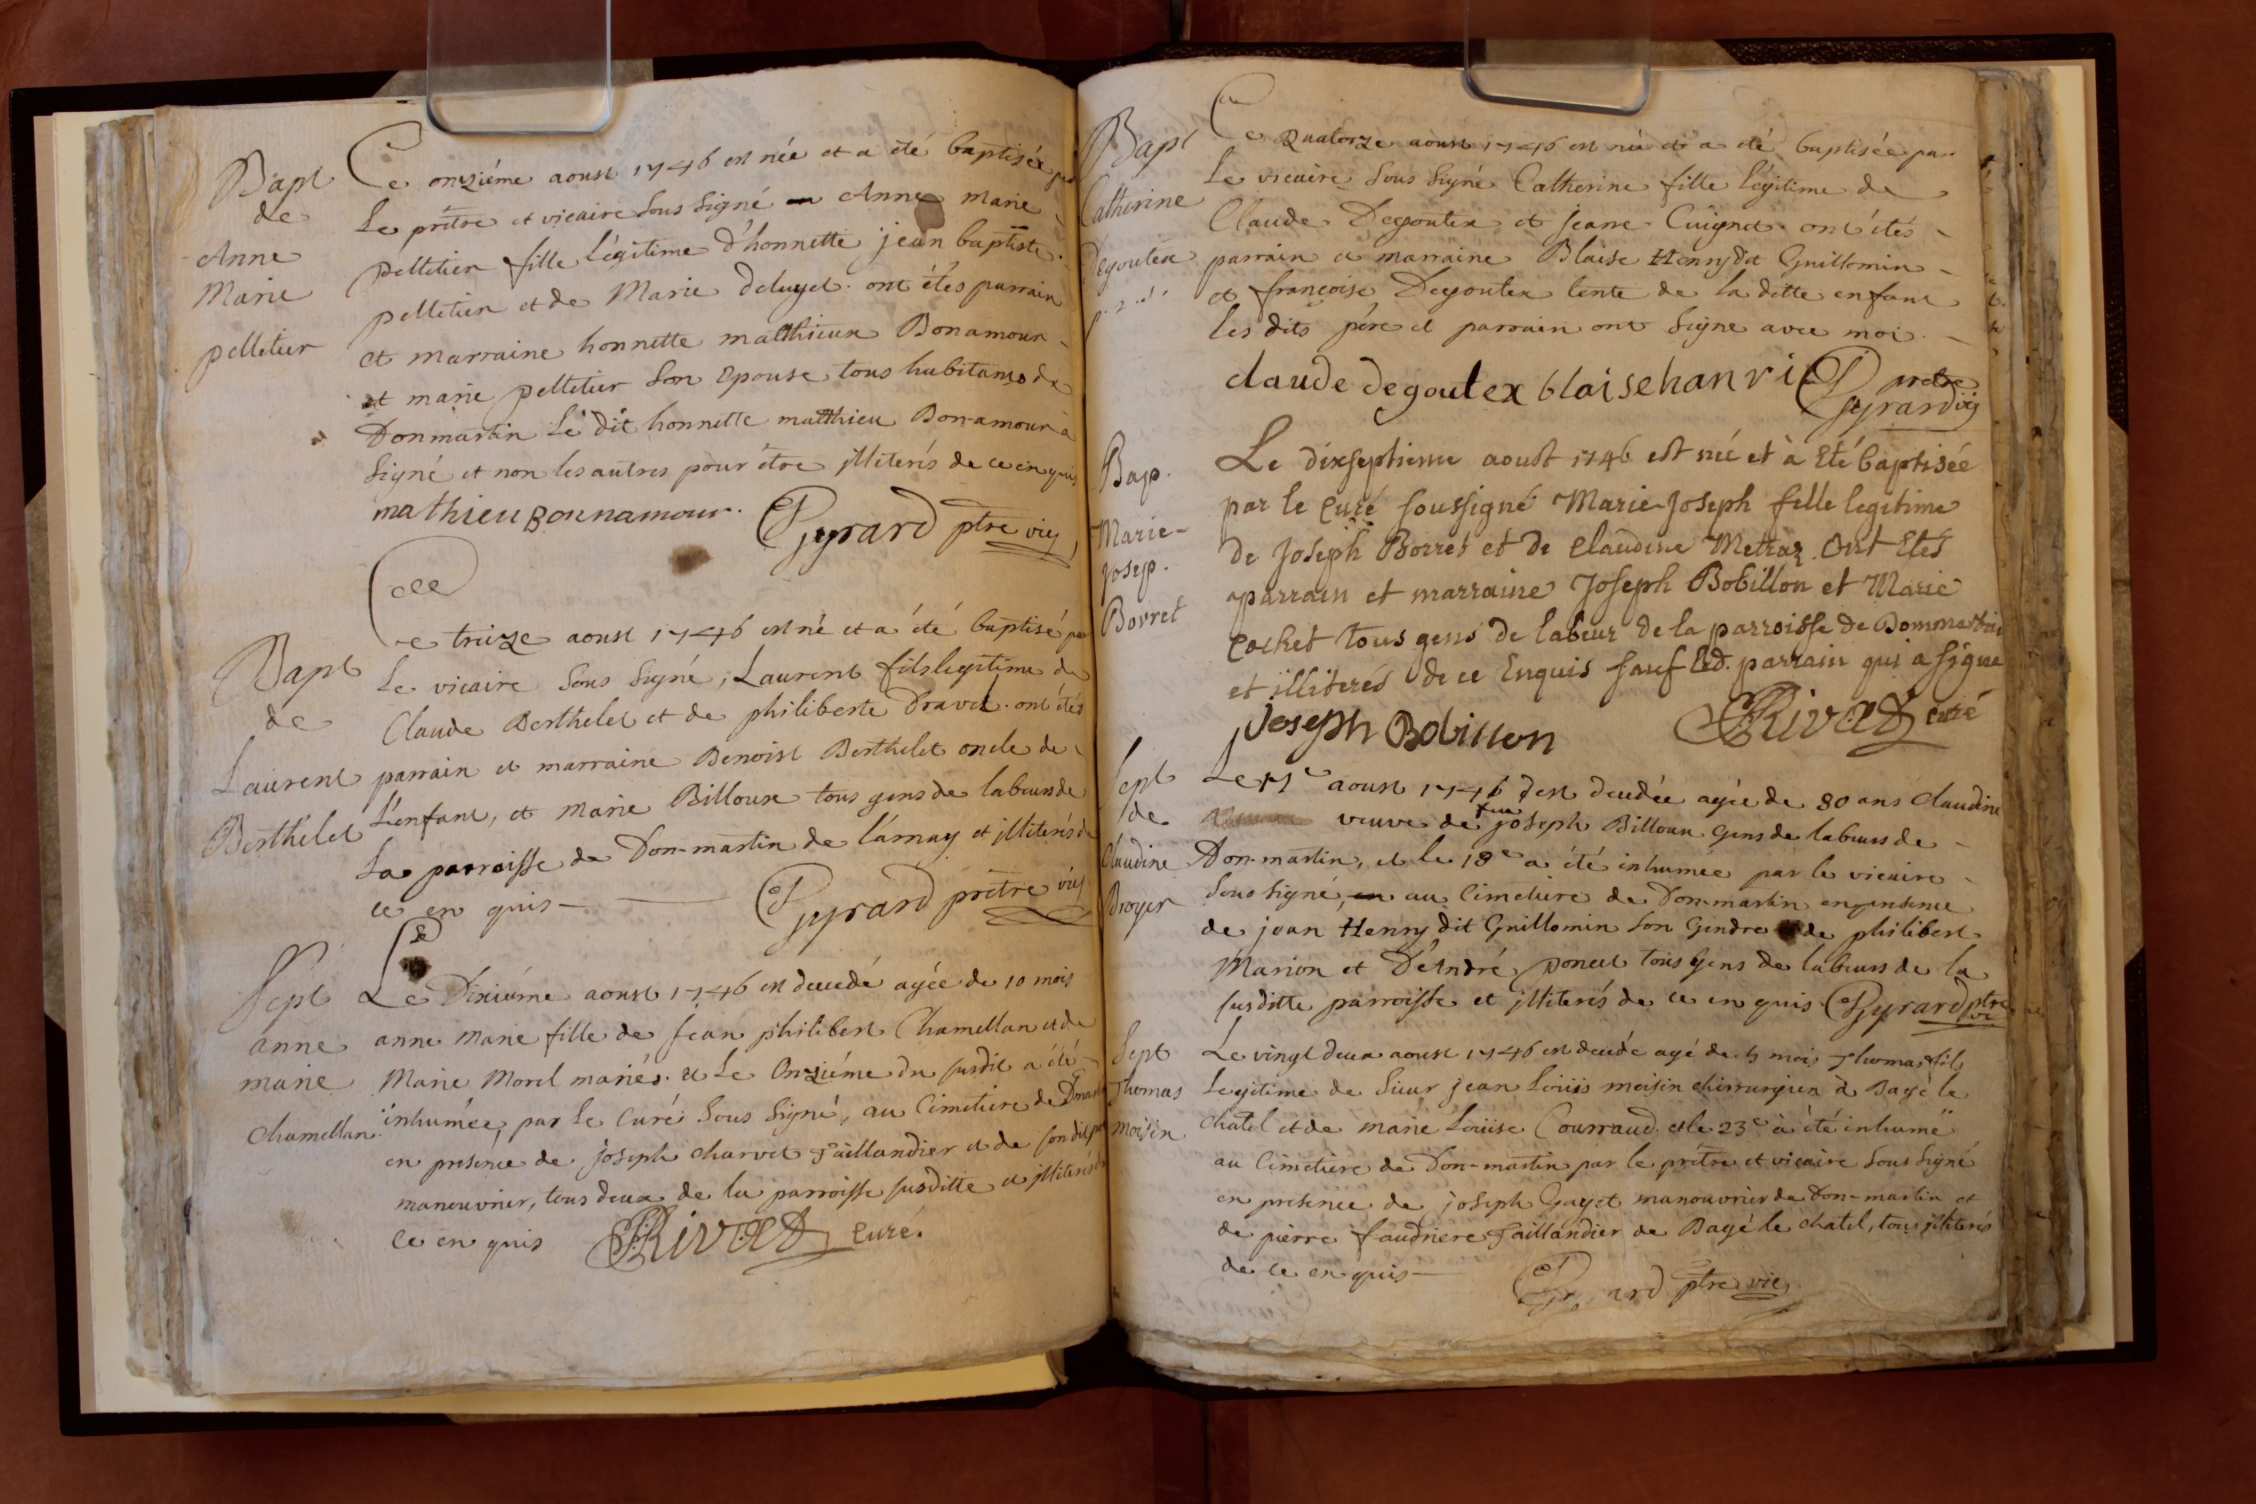 Bapt
de
Anne
Marie
pelletier
Ce onziéme aoust 1746 est née et a été baptisée par
Le prêtre et vicaire sous signé Anne marie
pelletier fille légitime d'honnette jean baptiste
pelletier et de Marie deluyet. ont étés parrain
et marraine honnette matthieu Bonamour
et marie pelletier son epouse tous habitants de
Donmartin le dit honnette matthieu Bon-amour a
signé et non les autres pour être jlliterés de ce enquis
mathieu Bonnamour. Pyrard ptre vic
Bapt
de
Laurent
Berthelet
Ce treize aoust 1746 est né et a été baptisé par
Le vicaire sous signé, Laurent fils legitime de
Claude Berthelet et de philiberte Dravet. ont étés
parrain et marraine Benoist Berthelet oncle de
L'enfant, et marie Billoux tous gens de labeurs de
La parroisse de Don-martin de larnay et jlliterés de
ce en quis Pyrard prêtre vic
Sept
anne
marie
chamellan
Le Dixiéme aoust 1746 est decedé agée de 10 mois
anne marie fille de jean philibert Chamellan et de
Marie Morel mariés. et Le Onziéme du susdit a été
inhumée, par Le Curé sous signé, au Cimetiere de
en presence de joseph charvet Taillandier et de son dit
manouvrier, tous deux de la parroisse susditte et jlliterés
ce en quis Rivat Curé.
Bapt
Catherine
Degoutex
Ce Quatorze aoust 1746 est née et a été baptisée par
Le vicaire sous signé Catherine fille légitime de
Claude Degoutex et jeane Cuignet ont étés
parrain et marraine Blaise Henry dit Guillomin
et françoise Degoutex tente de la ditte enfant
les dits pére et parrain ont signe avec moi
claude degoutex blaise hanri Pyrard prêtre vic
Bap.
Marie-
Josep.
Borret
Le dixseptieme aoust 1746 est née et à été baptisée
par le curé soussigné Marie-Joseph fille legitime
de Joseph Borret et de claudine Metraz. Ont Etés
parrain et marraine Joseph Bobillon et Marie
cochet tous gens de labeur de la parroisse de Dommartin
et illiterés de ce Enquis sauf led. parrain qui a signe
Joseph Bobillon Rivat curé
Sept
de
Claudine
Broyer
Le aoust 1746 est decedée agée de 80 ans claudine
veuve de feu joseph Billoux gens de labeurs de
Don-martin, et le 18e a été inhumée par le vicaire
sous signé, au Cimetiere de Don-martin en presence
de jean Henry dit Guillomin son Gendre de philibert
Marion et D'André poncet tous gens de labeurs de la
susditte parroisse et jlliterés de ce en quis Pyrard ptre vic
Sept
Thomas
moisin
Le vingt deux aoust 1746 est decede agé de 5 mois Thomas fils
Legitime de sieur jean Loüis moisin chirurgien à Bagé le
chatel et de marie Loüise Courraud. et le 23e à été inhumé
au Cimetiere de Don-martin par le prêtre et vicaire sous signé
en presence de joseph Guyot manouvrier de Don-martin et
de pierre faudriere Taillandier de Bagé le chatel, tous jlliterés
de ce en quis Pyrard ptre vic